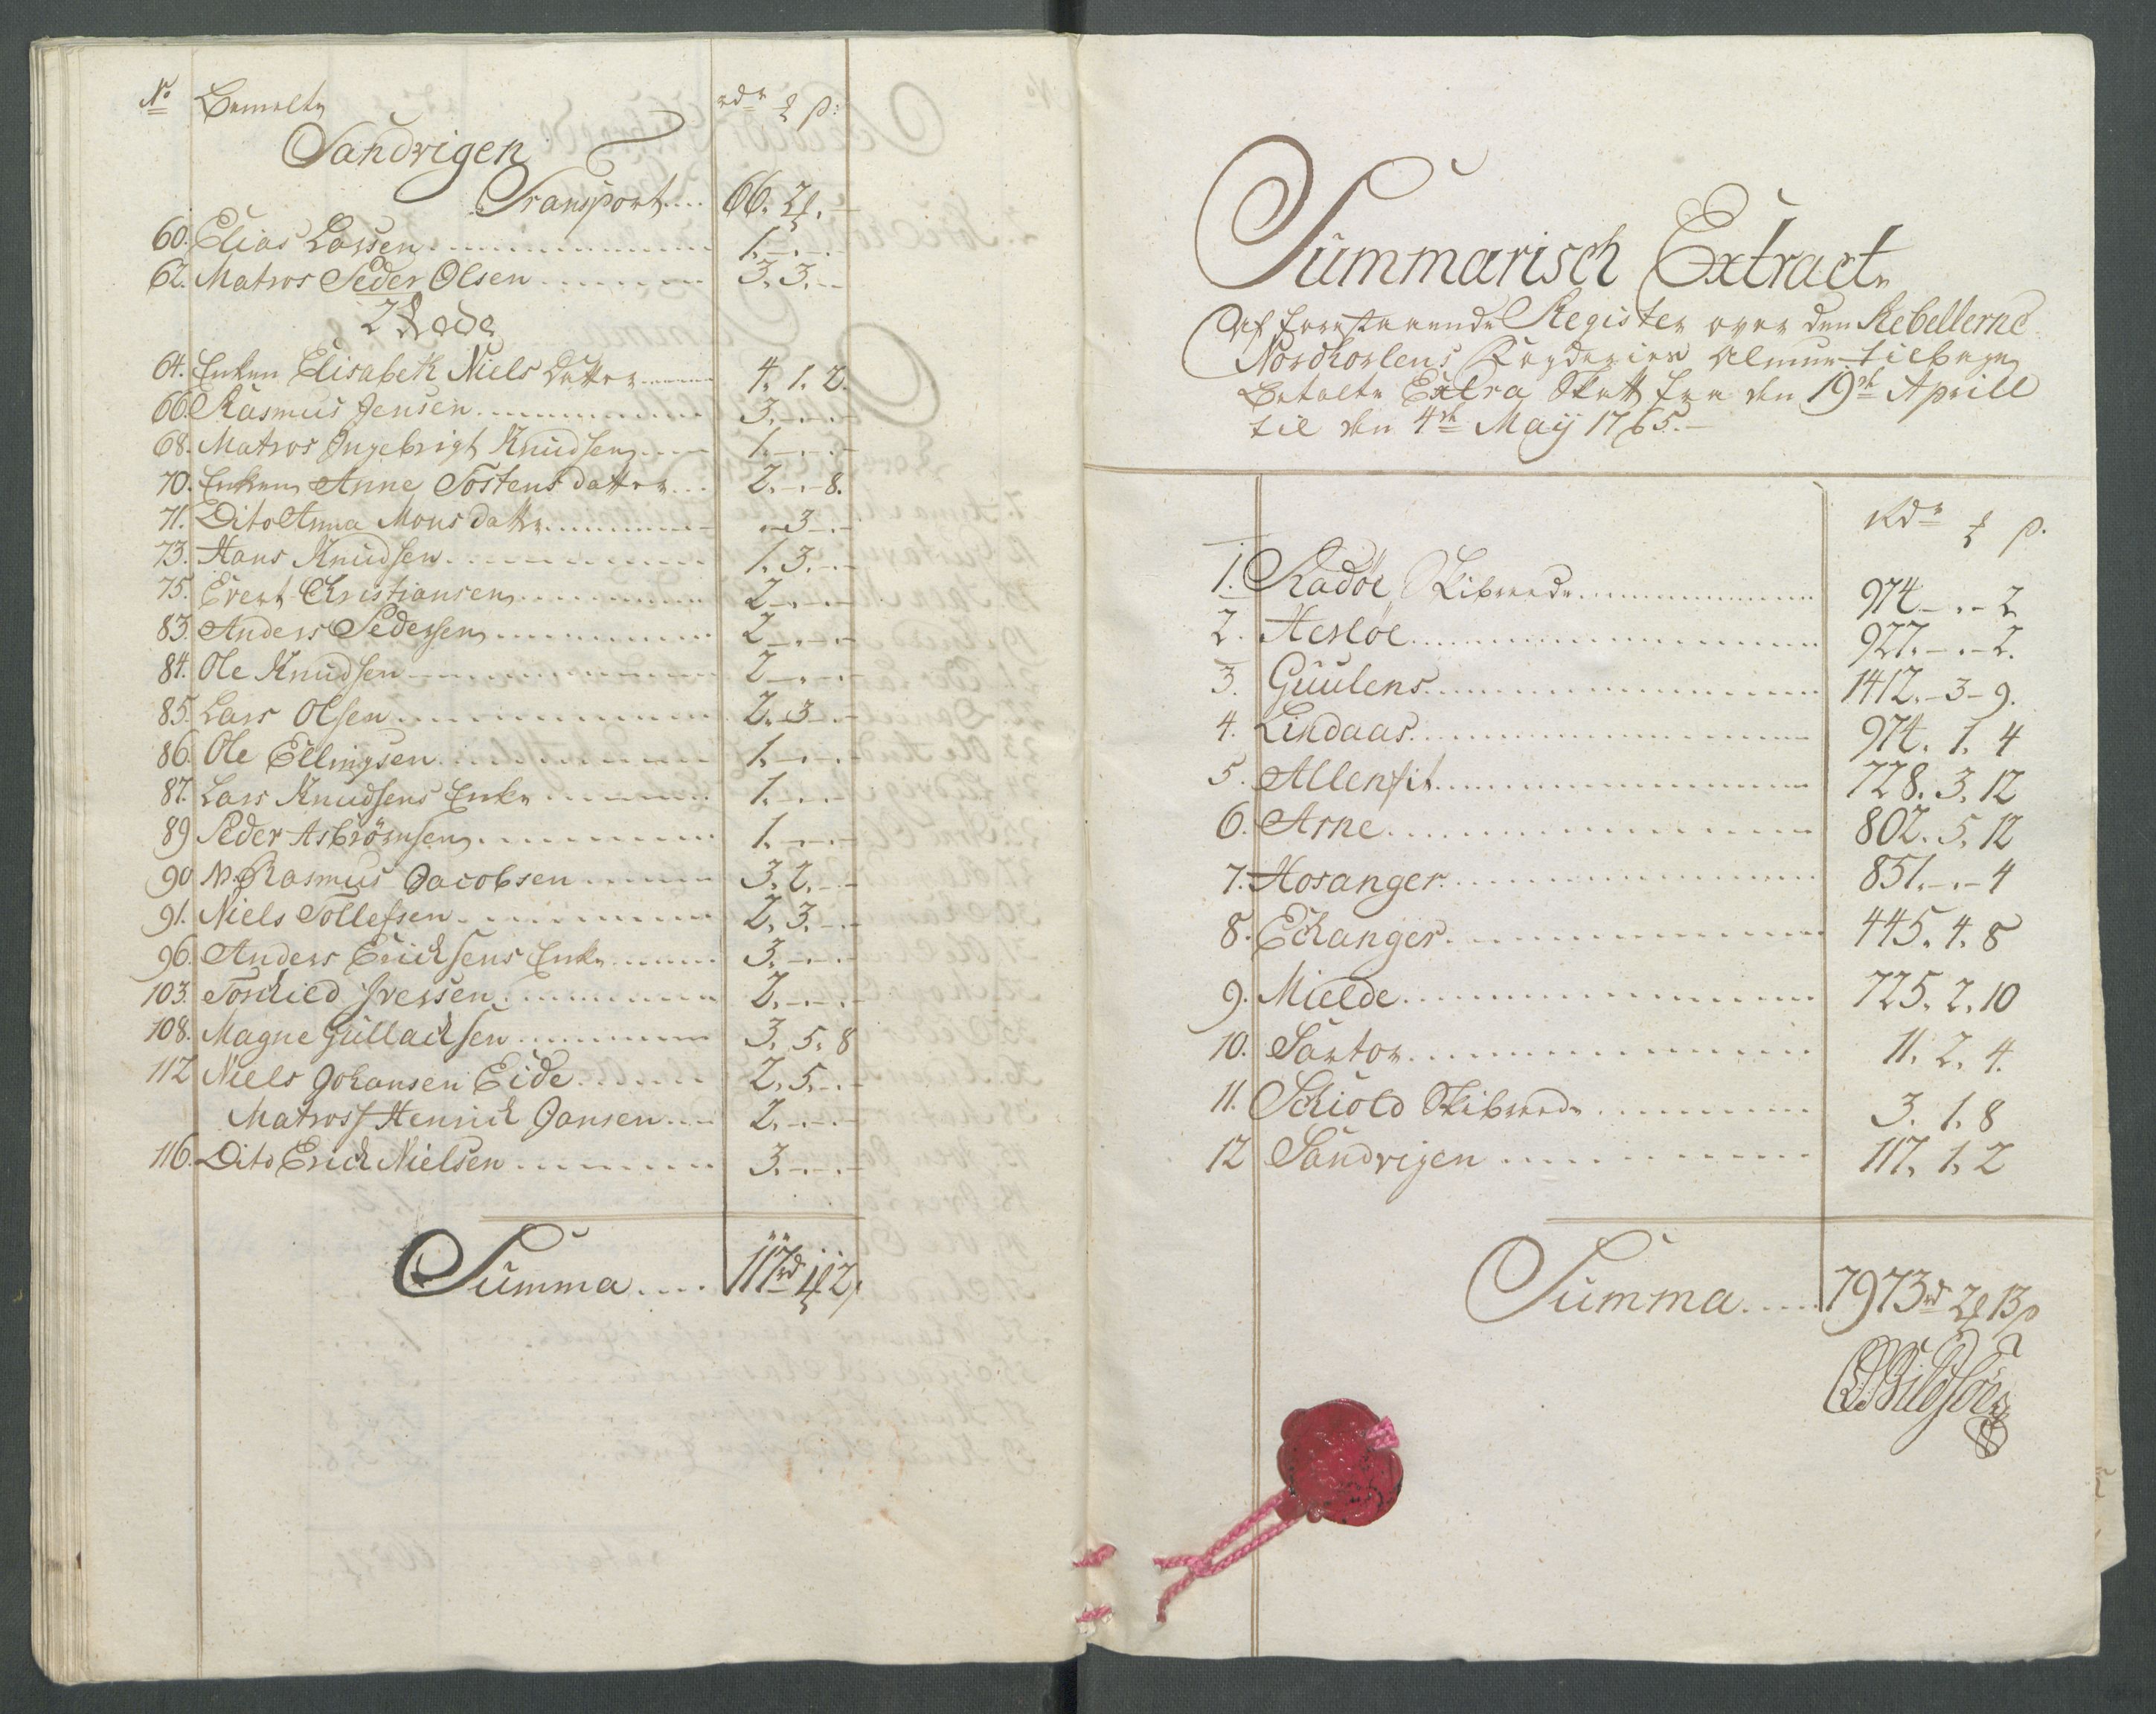 No Bemelte rdr ₰ β:
Sandvigen
Transport.... 66. 2₰. —
60. Elias Larsen........ 1. — . —
62. Matros Peder Olsen........ 3. 3. —
2 Rode
64. Enken Elisabeth Niels Datter........ 4. 1. 2.
66. Rasmus Jensen........ 3. — . —
68. Matros Ingebrigt Knudsen........ 1. — . —
70. Enken Anne Tostens datter... 2. — . 8.
71. Dito Anna Mons datter........ — 3 — . —
73. Hans Knudsen........ 1. 3. —
75. Evert Christiansen........ 2 — . —
83. Anders Pedersen........ 2 — . —
84. Ole Knudsen........ 2 — . —
85. Lars Olsen........ 2. 3 — . —
86. Ole Ellingsen........ 1. — . —
87. Lars Knudsens Enke........ 1. — . —
89 Peder Asbiörnsen........ 1. — . —
90 M. Rasmus Jacobsen........ 3. 2. —
91. Niels Tollefsen........ 2. 3. —
96. Anders Ericksens Enke........ 3. — . —
103. Torkied Iversen........ 2. — . —
108. Magne Gullacksen........ 3. 5. 8
112 Niels Johansen Eide........ 2. 5. —
Matros Henrich Jansen... 2. — . —
116. Dito Erick Nielsen........ 3. — . —
Summa.... 117rd 1₰ 2β
Summarisch Extract
Af forestaaende Register over den Rebellerne
Nordhorlens Fogderies Almue tilbage
Betalte Extra Skatt fra den 19de Aprill
til den 4de Maij 1765. —
Rdr ₰ β.
1. Radöe Skibrede........ 974 — . — 2
2. Herlöe........ 927. — . — 2.
3. Guulens........ 1412. — 3 — 9.
4. Lindaas........ 974. 1. 4
5. Allenfit........ 728. 3. 12
6. Arne........ 802. 5. 12
7. Hosanger........ 851. — . — 4
8. Echanger........ 445. 4. 8
9. Mielde........ 725. 2. 10
10. Sartor........ 11. 2. 4.
11. Schiold Skibrede........ 3. 1. 8
12 Sandvigen........ 117. 1. 2
Summa..... 7973rd 2₰ 13β